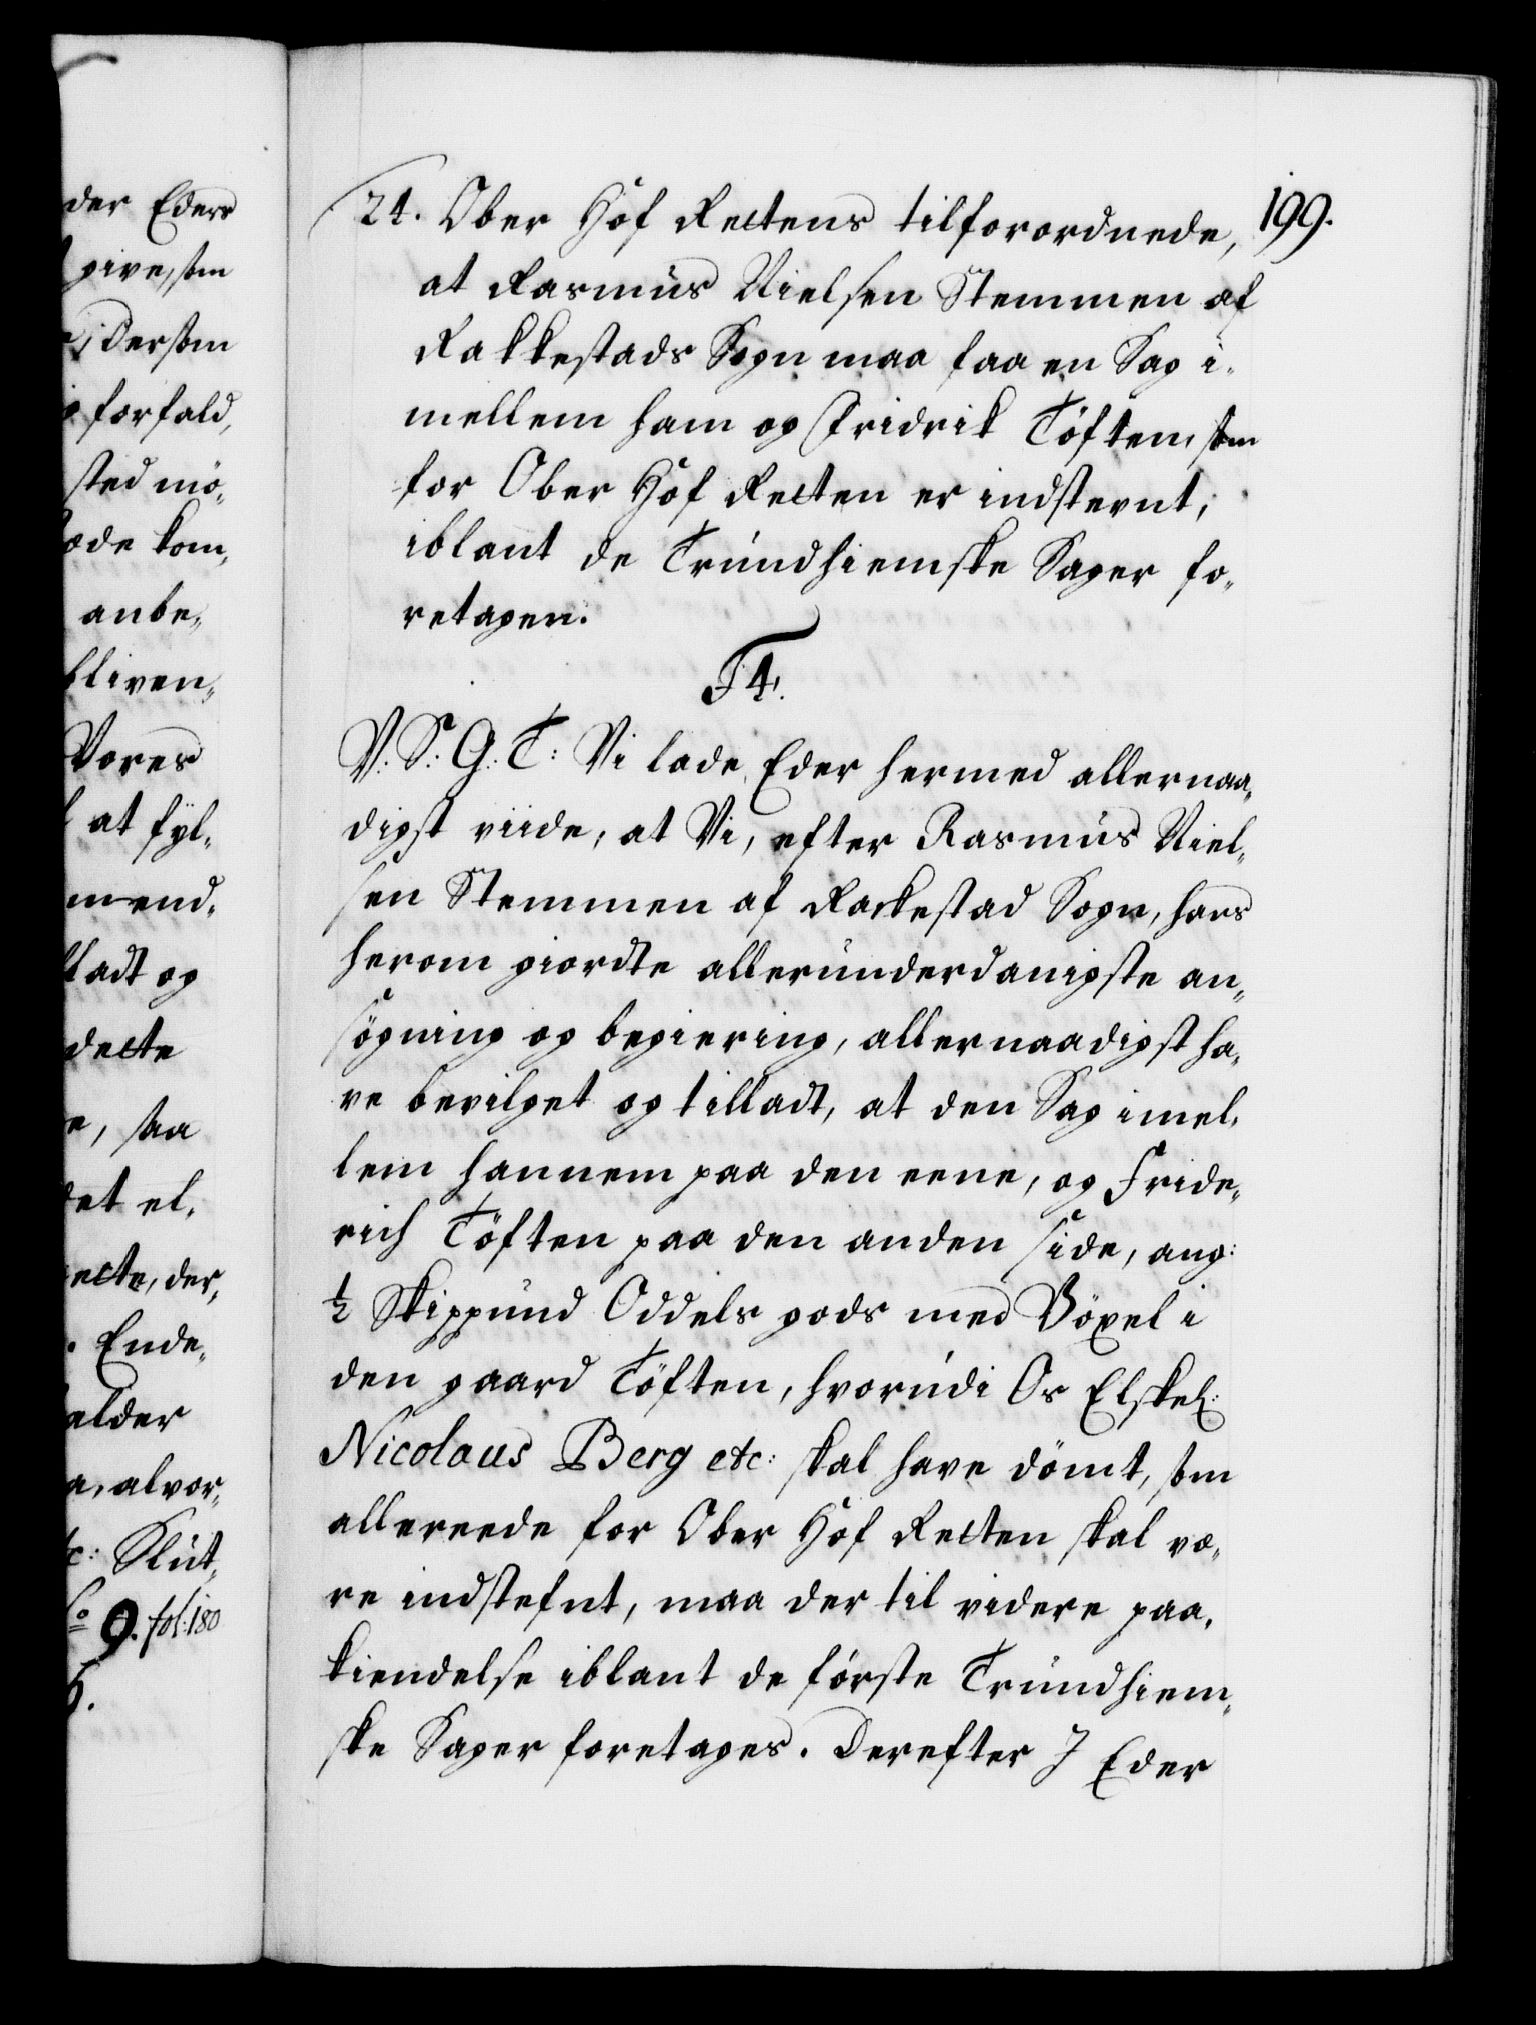 der Eders
give, som
Dersom
forfald,
sted mö„
ode kom„
anbe„
bliven„
Vores
at fyl„
mend„
ladt og
decte
e, saa
det el„
ecte, der„
Ende„
alder
a, alvor„
tc: Slut„
9. fol: 180
6.
199.
24. Ober Hof Rettens tilforordnede,
at Rasmus Nielsen Stemmen af
Rakkestads Sogn maa faa en Sag i„
mellem ham og Fridrik Töften, som
for Ober Hof Retten er indstevnt,
iblant de Trundhiemske Sager fo„
retagen.
F 4.
V: S: G: T: Vi lade Eder hermed allernaa„
digst viide, at Vi, efter Rasmus Niel„
sen Stemmen af Rackestad Sogn, hans
herom giordte allerunderdanigste an„
søgning og begiering, allernaadigst ha„
ve bevilget og tilladt, at den Sag imel„
lem hannem paa den eene, og Fride„
rich Töften paa den anden side, ang:
½ Skippund Oddels gods med Böxel i
den gaard Töften, hvorudi Os Elskel:
Nicolaus Berg etc: skal have dömt, som
allereede for Ober Hof Retten skal væ„
re indstefnt, maa der til videre paa„
kiendelse iblant de förste Trundhiem„
ske Sager foretages. Derefter I Eder